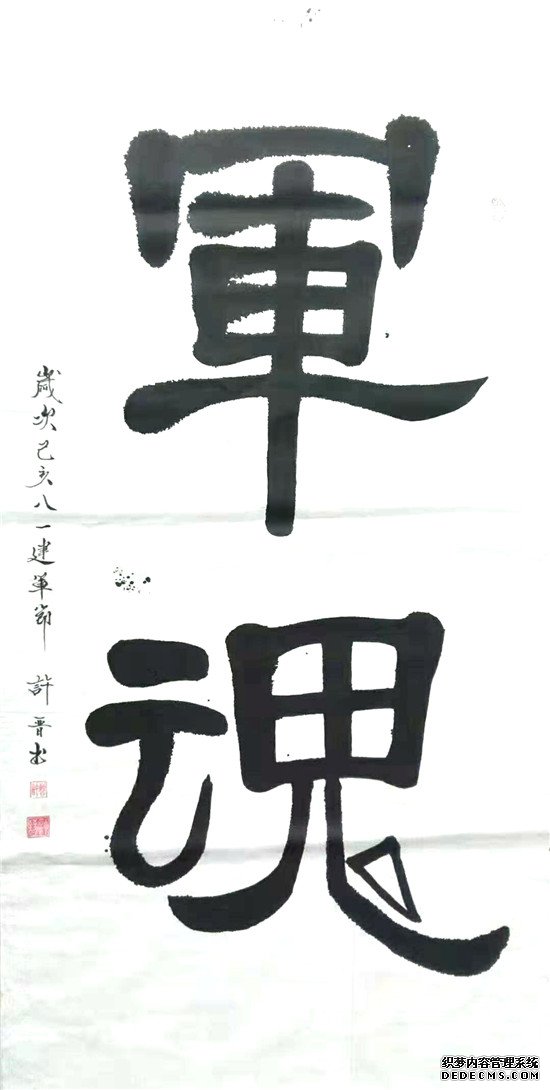 軍
魂
歲次己亥八一建軍節 許晉书
织梦内容管理系统
DEDECMS.COM